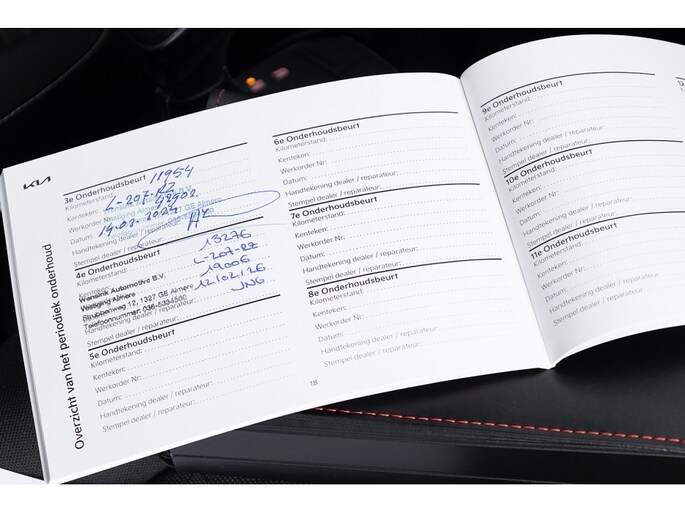 KIA
Overzicht van het periodiek onderhoud
3e Onderhoudsbeurt
Kilometerstand: 11954
Kenteken: L-207-RZ
Werkorder Nr:
Datum: 14.03.2024
Handtekening dealer / reparateur:
Stempel dealer / reparateur:
4e Onderhoudsbeurt
13276
L-207-RZ
19006
12/02/26
JNG
Wensink Automotive B.V.
Vestiging Almere
1327 GE Almere
Telefoonnummer: 036-5334500
Handtekening dealer / reparateur:
Stempel dealer / reparateur:
5e Onderhoudsbeurt
Kilometerstand:
Kenteken:
Werkorder Nr:
Datum:
Handtekening dealer / reparateur:
Stempel dealer / reparateur:
6e Onderhoudsbeurt
Kilometerstand:
Kenteken:
Werkorder Nr:
Datum:
Handtekening dealer / reparateur:
Stempel dealer / reparateur:
7e Onderhoudsbeurt
Kilometerstand:
Kenteken:
Werkorder Nr:
Datum:
Handtekening dealer / reparateur:
Stempel dealer / reparateur:
8e Onderhoudsbeurt
Kilometerstand:
Kenteken:
Werkorder Nr:
Datum:
Handtekening dealer / reparateur:
Stempel dealer / reparateur:
18
9e Onderhoudsbeurt
Kilometerstand:
Kenteken:
Werkorder Nr:
Datum:
Handtekening dealer / reparateur:
Stempel dealer / reparateur:
10e Onderhoudsbeurt
Kilometerstand:
Kenteken:
Werkorder Nr:
Datum:
Handtekening dealer / reparateur:
Stempel dealer / reparateur:
11e Onderhoudsbeurt
Kilometerstand:
Kenteken:
Werkorder Nr:
Datum:
Handtekening dealer / reparateur:
Stempel dealer / reparateur: